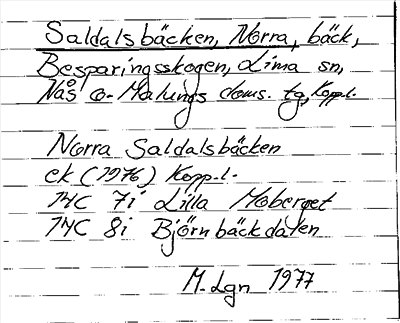 Saldalsbäcken, Norra, bäck,
Besparingsskogen, Lima sn,
Nås o. Malungs doms. tg, Kopp.l.
Norra Saldalsbäcken
ek (1976) Kopp.l.
14C 7i Lilla Moberget
14C 8i Björnbäckdalen
M. Lgn 1977